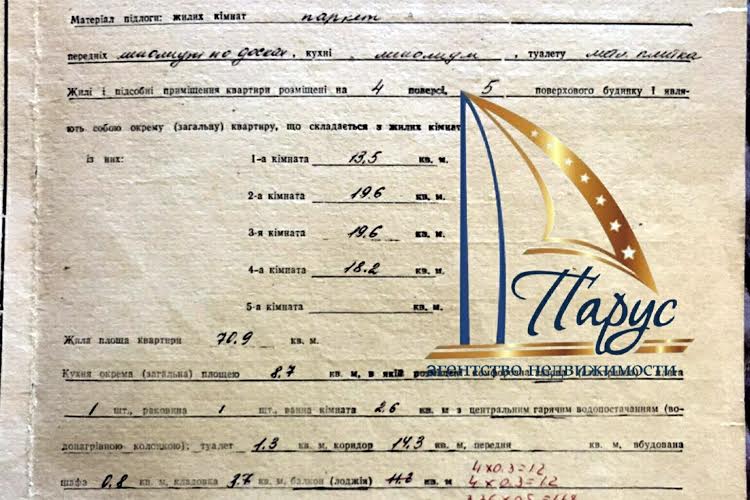 Матеріал підлоги: жилих кімнат паркет
передніх линолиум по доскам, кухні линолиум, туалету метл. плитка
Жилі і підсобні приміщення квартири розміщені на 4 поверсі, 5 поверхового будинку і явля-
ють собою окрему (загальну) квартиру, що складається з жилих кімнат
із них: 1-а кімната 13,5 кв. м.
2-а кімната 19.6 кв. м.
3-я кімната 19.6 кв. м.
4-а кімната 18.2 кв. м.
5-а кімната кв. м.
Парус
Жила площа квартири 70.9 кв. м.
агентство недвижимости
Кухня окрема (загальна) площею 8.7 кв. м, в якій
1 шт., раковина 1 шт., ванна кімната 2.6 кв. м з центральним гарячим водопостачанням (во-
донагрівною колонкою); туалет 1.3 кв. м, коридор 14.3 кв. м, передня кв. м, вбудована
шафа 0.8 кв. м, кладовка 3.7 кв. м, балкон (лоджія) кв. м
4 x 0.3 = 12
4 x 0.3 = 12